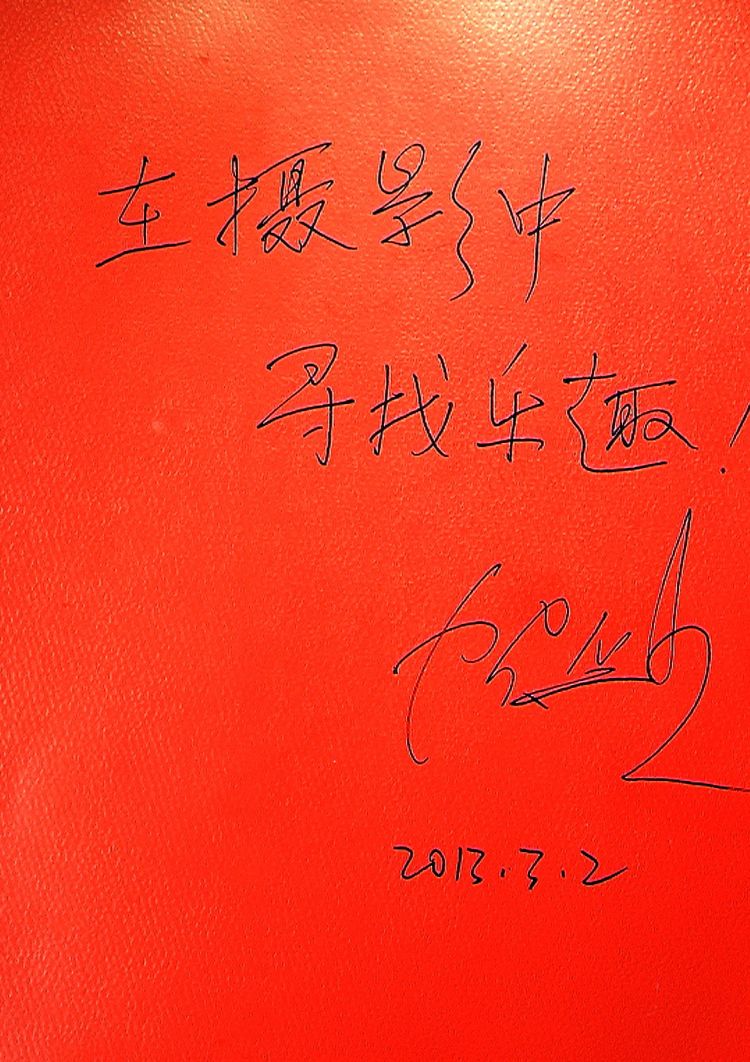 在摄影中
寻找乐趣!
2013.3.2